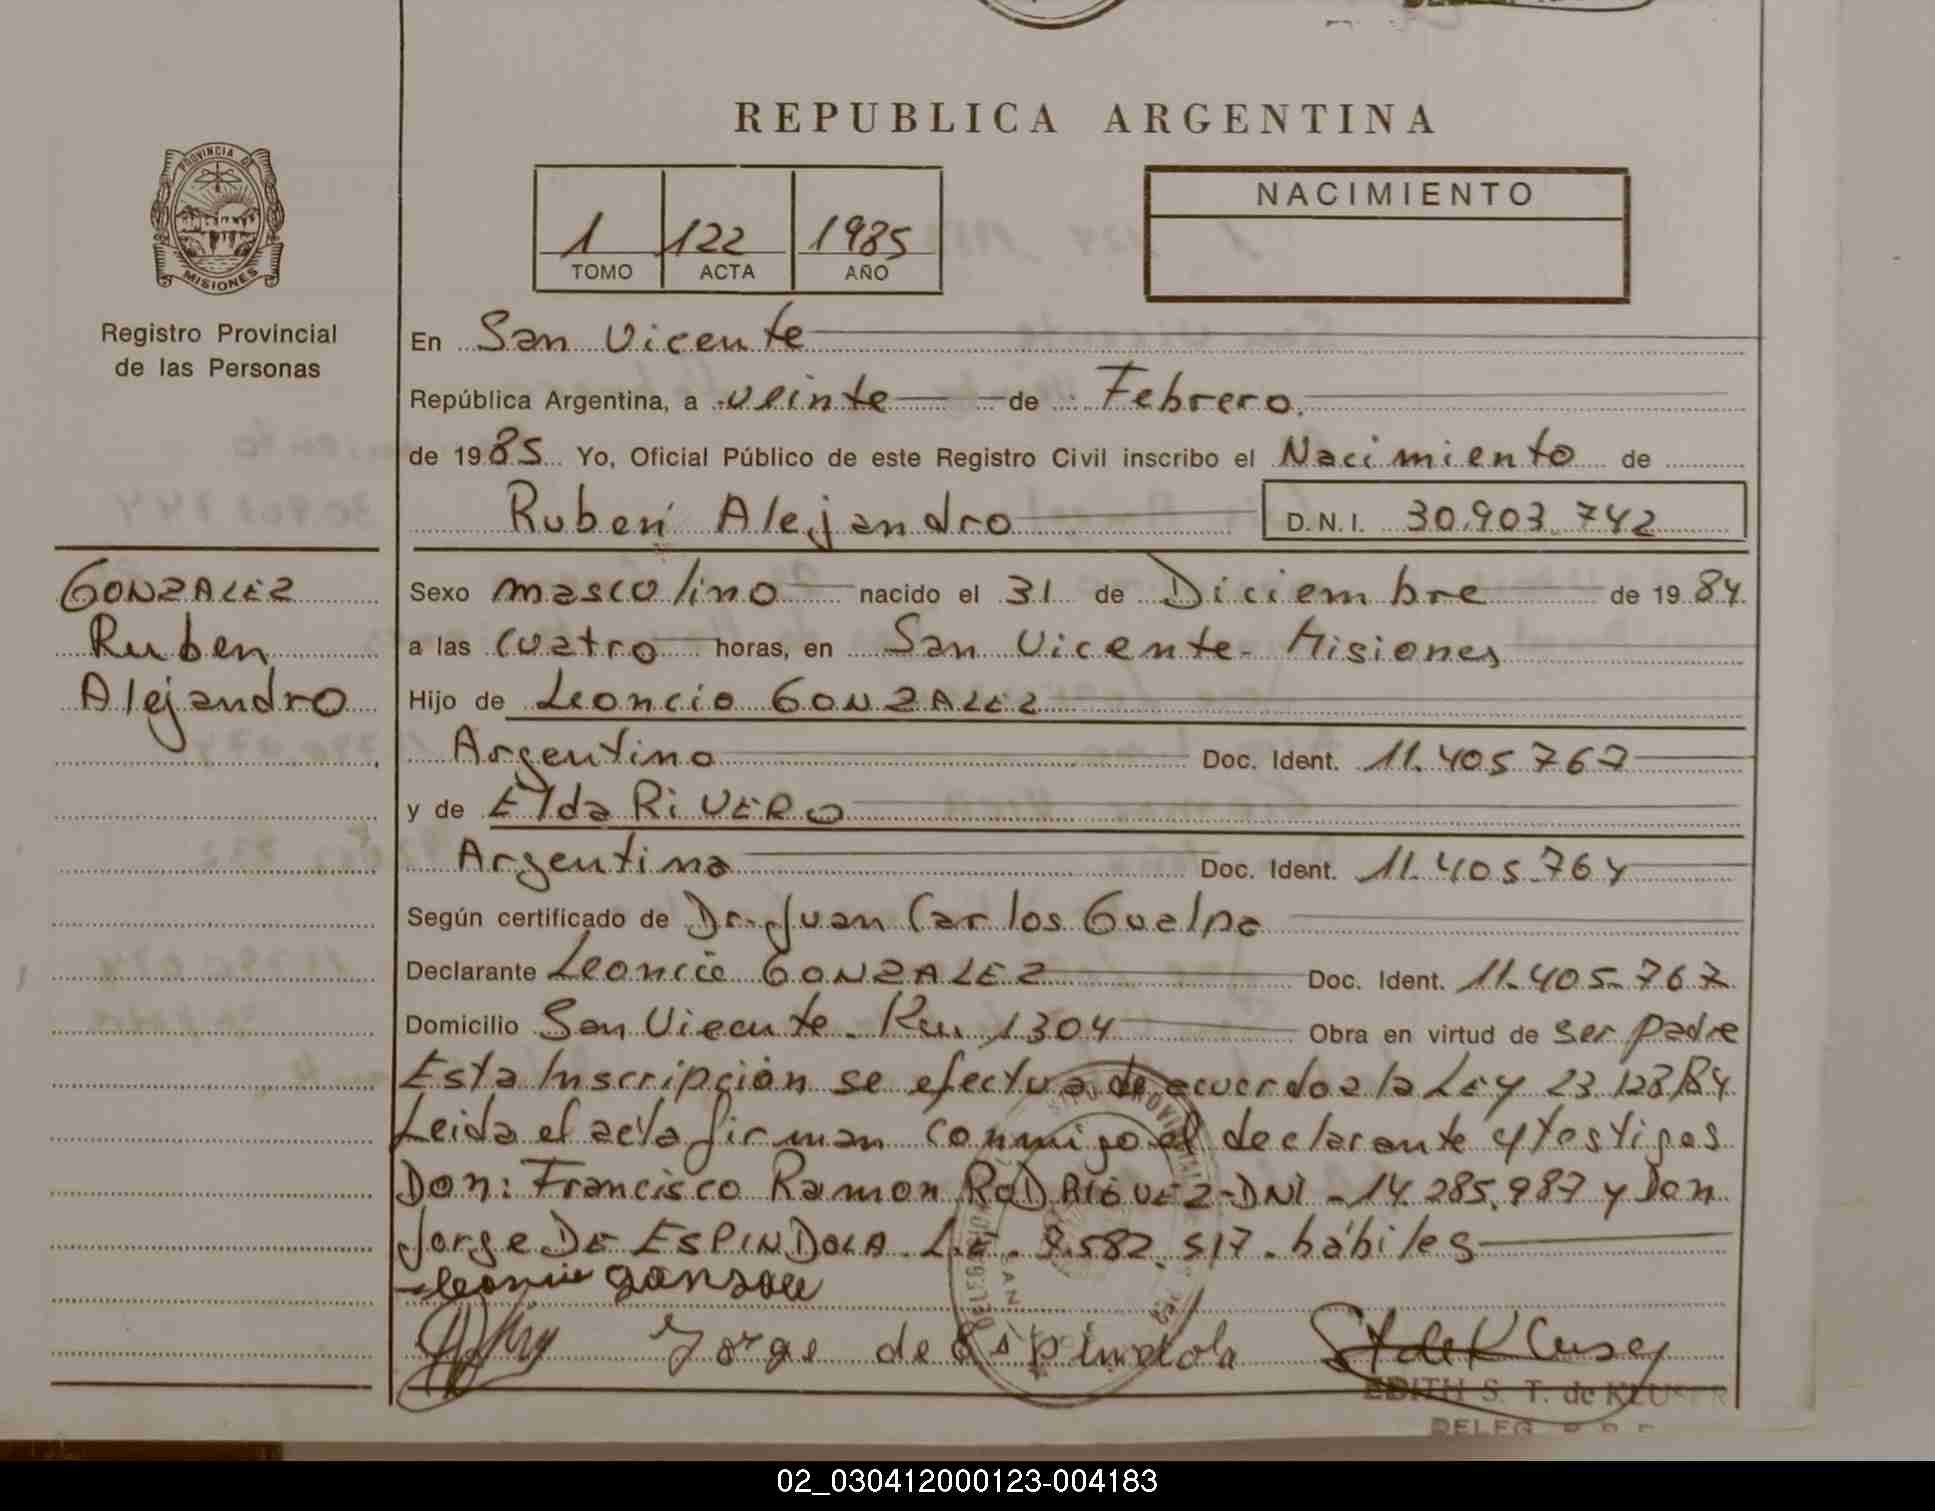 REPUBLICA ARGENTINA
PROVINCIA DE
MISIONES
Registro Provincial
de las Personas
1 122 1985
TOMO ACTA AÑO
NACIMIENTO
En San Vicente
República Argentina, a veinte de Febrero.
de 1985 Yo, Oficial Público de este Registro Civil inscribo el Nacimiento de
Ruben Alejandro D.N.I. 30.903.742
GONZALEZ
Ruben
Alejandro
Sexo masculino nacido el 31 de Diciembre de 1984.
a las cuatro horas, en San Vicente - Misiones
Hijo de Leoncio GONZALEZ
Argentino Doc. Ident. 11.405.767
y de Elda RiVERO
Argentina Doc. Ident. 11.405.764
Según certificado de Dr. Juan Carlos Guelpa
Declarante Leoncio GONZALEZ Doc. Ident. 11.405.767
Domicilio San Vicente - Km 1304 Obra en virtud de ser padre
Esta Inscripción se efectua de acuerdo a la LEY 23.128/84
Leida el acta firman conmigo el declarante y testigos
Don: Francisco Ramon RODRIGUEZ - DNI - 14.285.987 y Don
Jorge DE ESPINDOLA L.E. 8.582.517. hábiles
Jorge de Espindola
EDITH S. T. de KLUSER
DELEG.
02_030412000123-004183